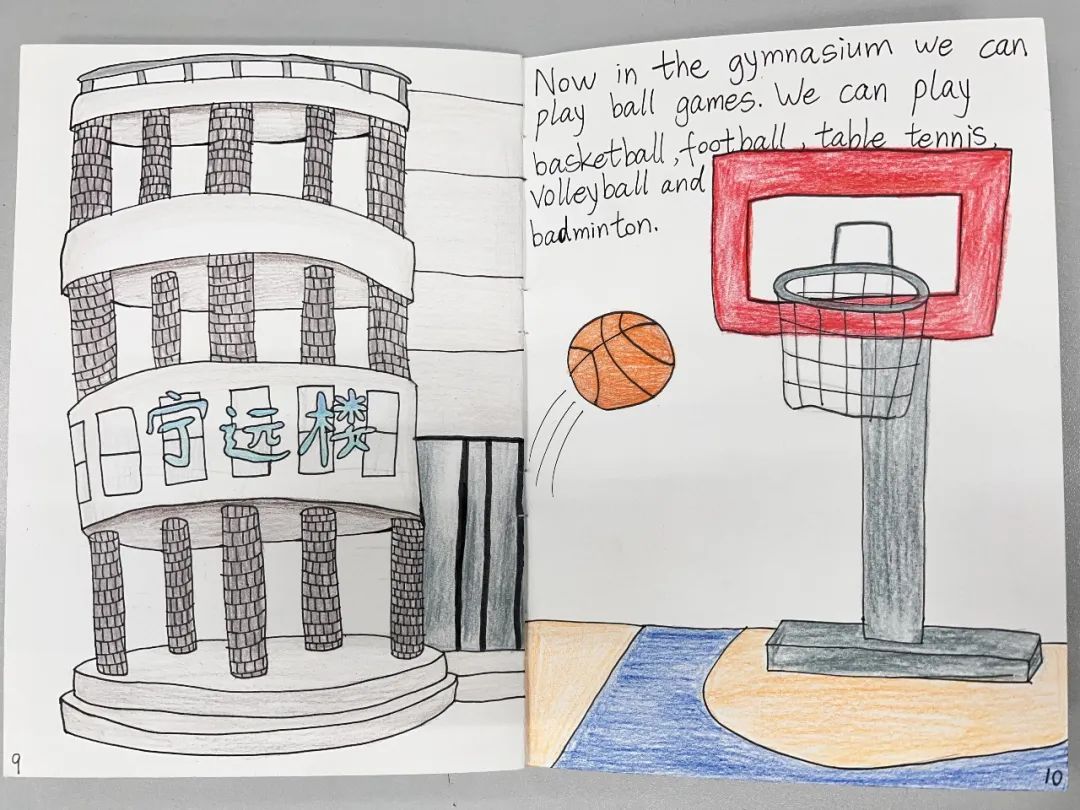 宁远楼
9
Now in the gymnasium we can
play ball games. We can play
basketball, football, table tennis,
volleyball and
badminton.
10